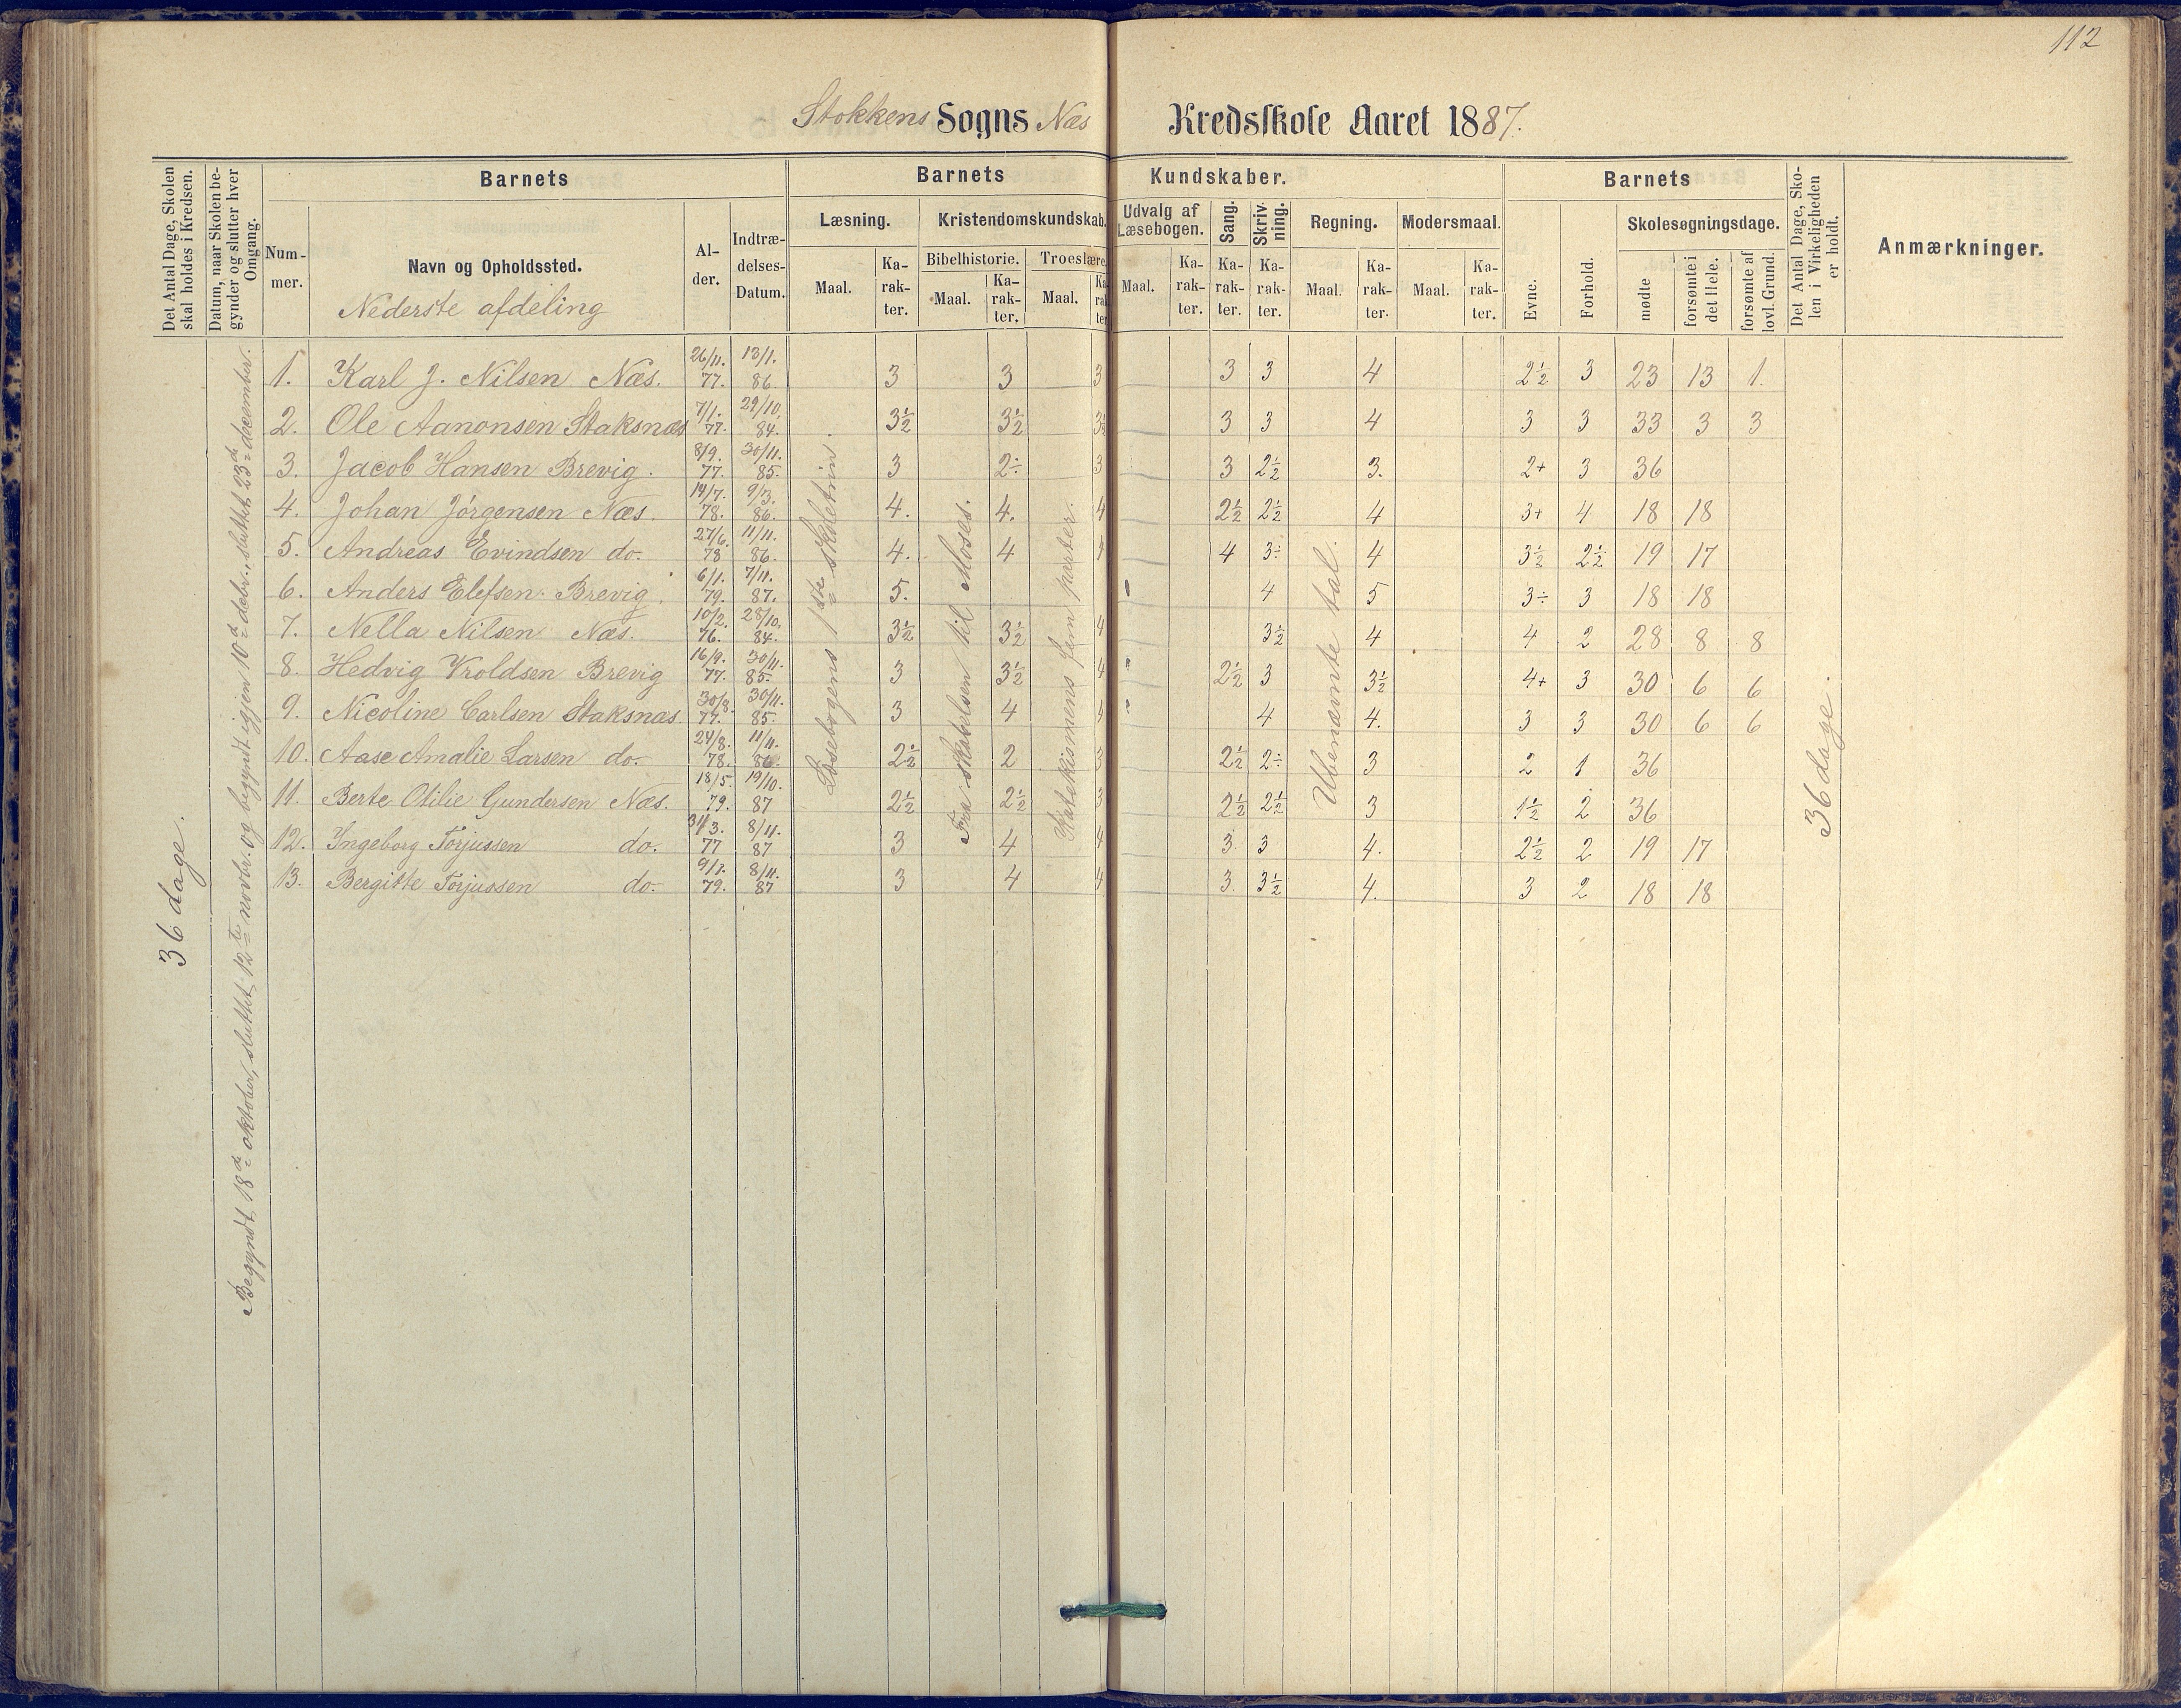 112
Stokkens Sogns Næs Kredsskole Aaret 1887.
Det Antal Dage, Skolen skal holdes i Kredsen.
Datum, naar Skolen begynder og slutter hver Omgang.
Barnets
Nummer.
Navn og Opholdssted.
Nederste afdeling
Alder.
Indtrædelses-Datum.
Barnets Kundskaber.
Læsning. Maal. Karakter.
Kristendomskundskab.
Bibelhistorie. Maal. Karakter.
Troeslære. Maal. Karakter.
Udvalg af Læsebogen. Maal. Karakter.
Sang. Karakter.
Skrivning. Karakter.
Regning. Maal. Karakter.
Modersmaal. Maal. Karakter.
Barnets
Evne. Forhold.
Skolesøgningsdage.
mødte forsømte i det Hele. forsømte af lovl. Grund.
Det Antal Dage, Skolen i Virkeligheden er holdt.
Anmærkninger.
36 dage.
Begyndt 18de oktober, sluttet 12te novbr. og begyndt igjen 10d debr., sluttet 23de december.
Læsebogens 1ste skoletrin.
Fra skabelsen til Moses.
Katekismens fem parter.
Ubenævnte tal.
36 dage.
1. Karl J. Nilsen Næs. 26/11. 77. 13/1. 86. 3 3 3 3 3 4 2½ 3 23 13 1.
2. Ole Aanonsen Staksnæs 7/1. 77. 29/10. 84. 3½ 3½ 3½ 3 3 4 3 3 33 3 3
3. Jacob Hansen Brevig. 8/9. 77. 30/11. 85. 3 2÷ 3 3 2½ 3. 2+ 3 36
4. Johan Jørgensen Næs. 14/7. 78. 9/3. 86. 4. 4. 4 2½ 2½ 4 3+ 4 18 18
5. Andreas Evindsen do. 27/6. 78 11/11. 86. 4. 4 4 4 3÷ 4 3½ 2½ 19 17
6. Anders Elefsen Brevig. 6/1. 79. 7/11. 87. 5. 4 5 3÷ 3 18 18
7. Nella Nilsen Næs. 10/2. 76. 28/10. 84. 3½ 3½ 4 3½ 4 4 2 28 8 8
8. Hedvig Vroldsen Brevig 16/9. 77. 30/11. 85. 3 3½ 4 2½ 3 3½ 4+ 3 30 6 6
9. Nicoline Carlsen Staksnæs. 30/8. 77. 30/11. 85. 3 4 4 4 4. 3 3 30 6 6
10. Aase Amalie Larsen do. 24/8. 78. 11/11. 86. 2½ 2 3 2½ 2÷ 3 2 1 36
11. Berte Otilie Gundersen Næs. 18/5. 79. 19/10. 87 2½ 2½ 3 2½ 2½ 3 1½ 2 36
12. Ingeborg Torjussen do. 31/3. 77 8/11. 87 3 4 4 3. 3 4. 2½ 2 19 17
13. Bergitte Torjussen do. 79. 8/11. 87 3 4 4 3. 3½ 4. 3 2 18 18